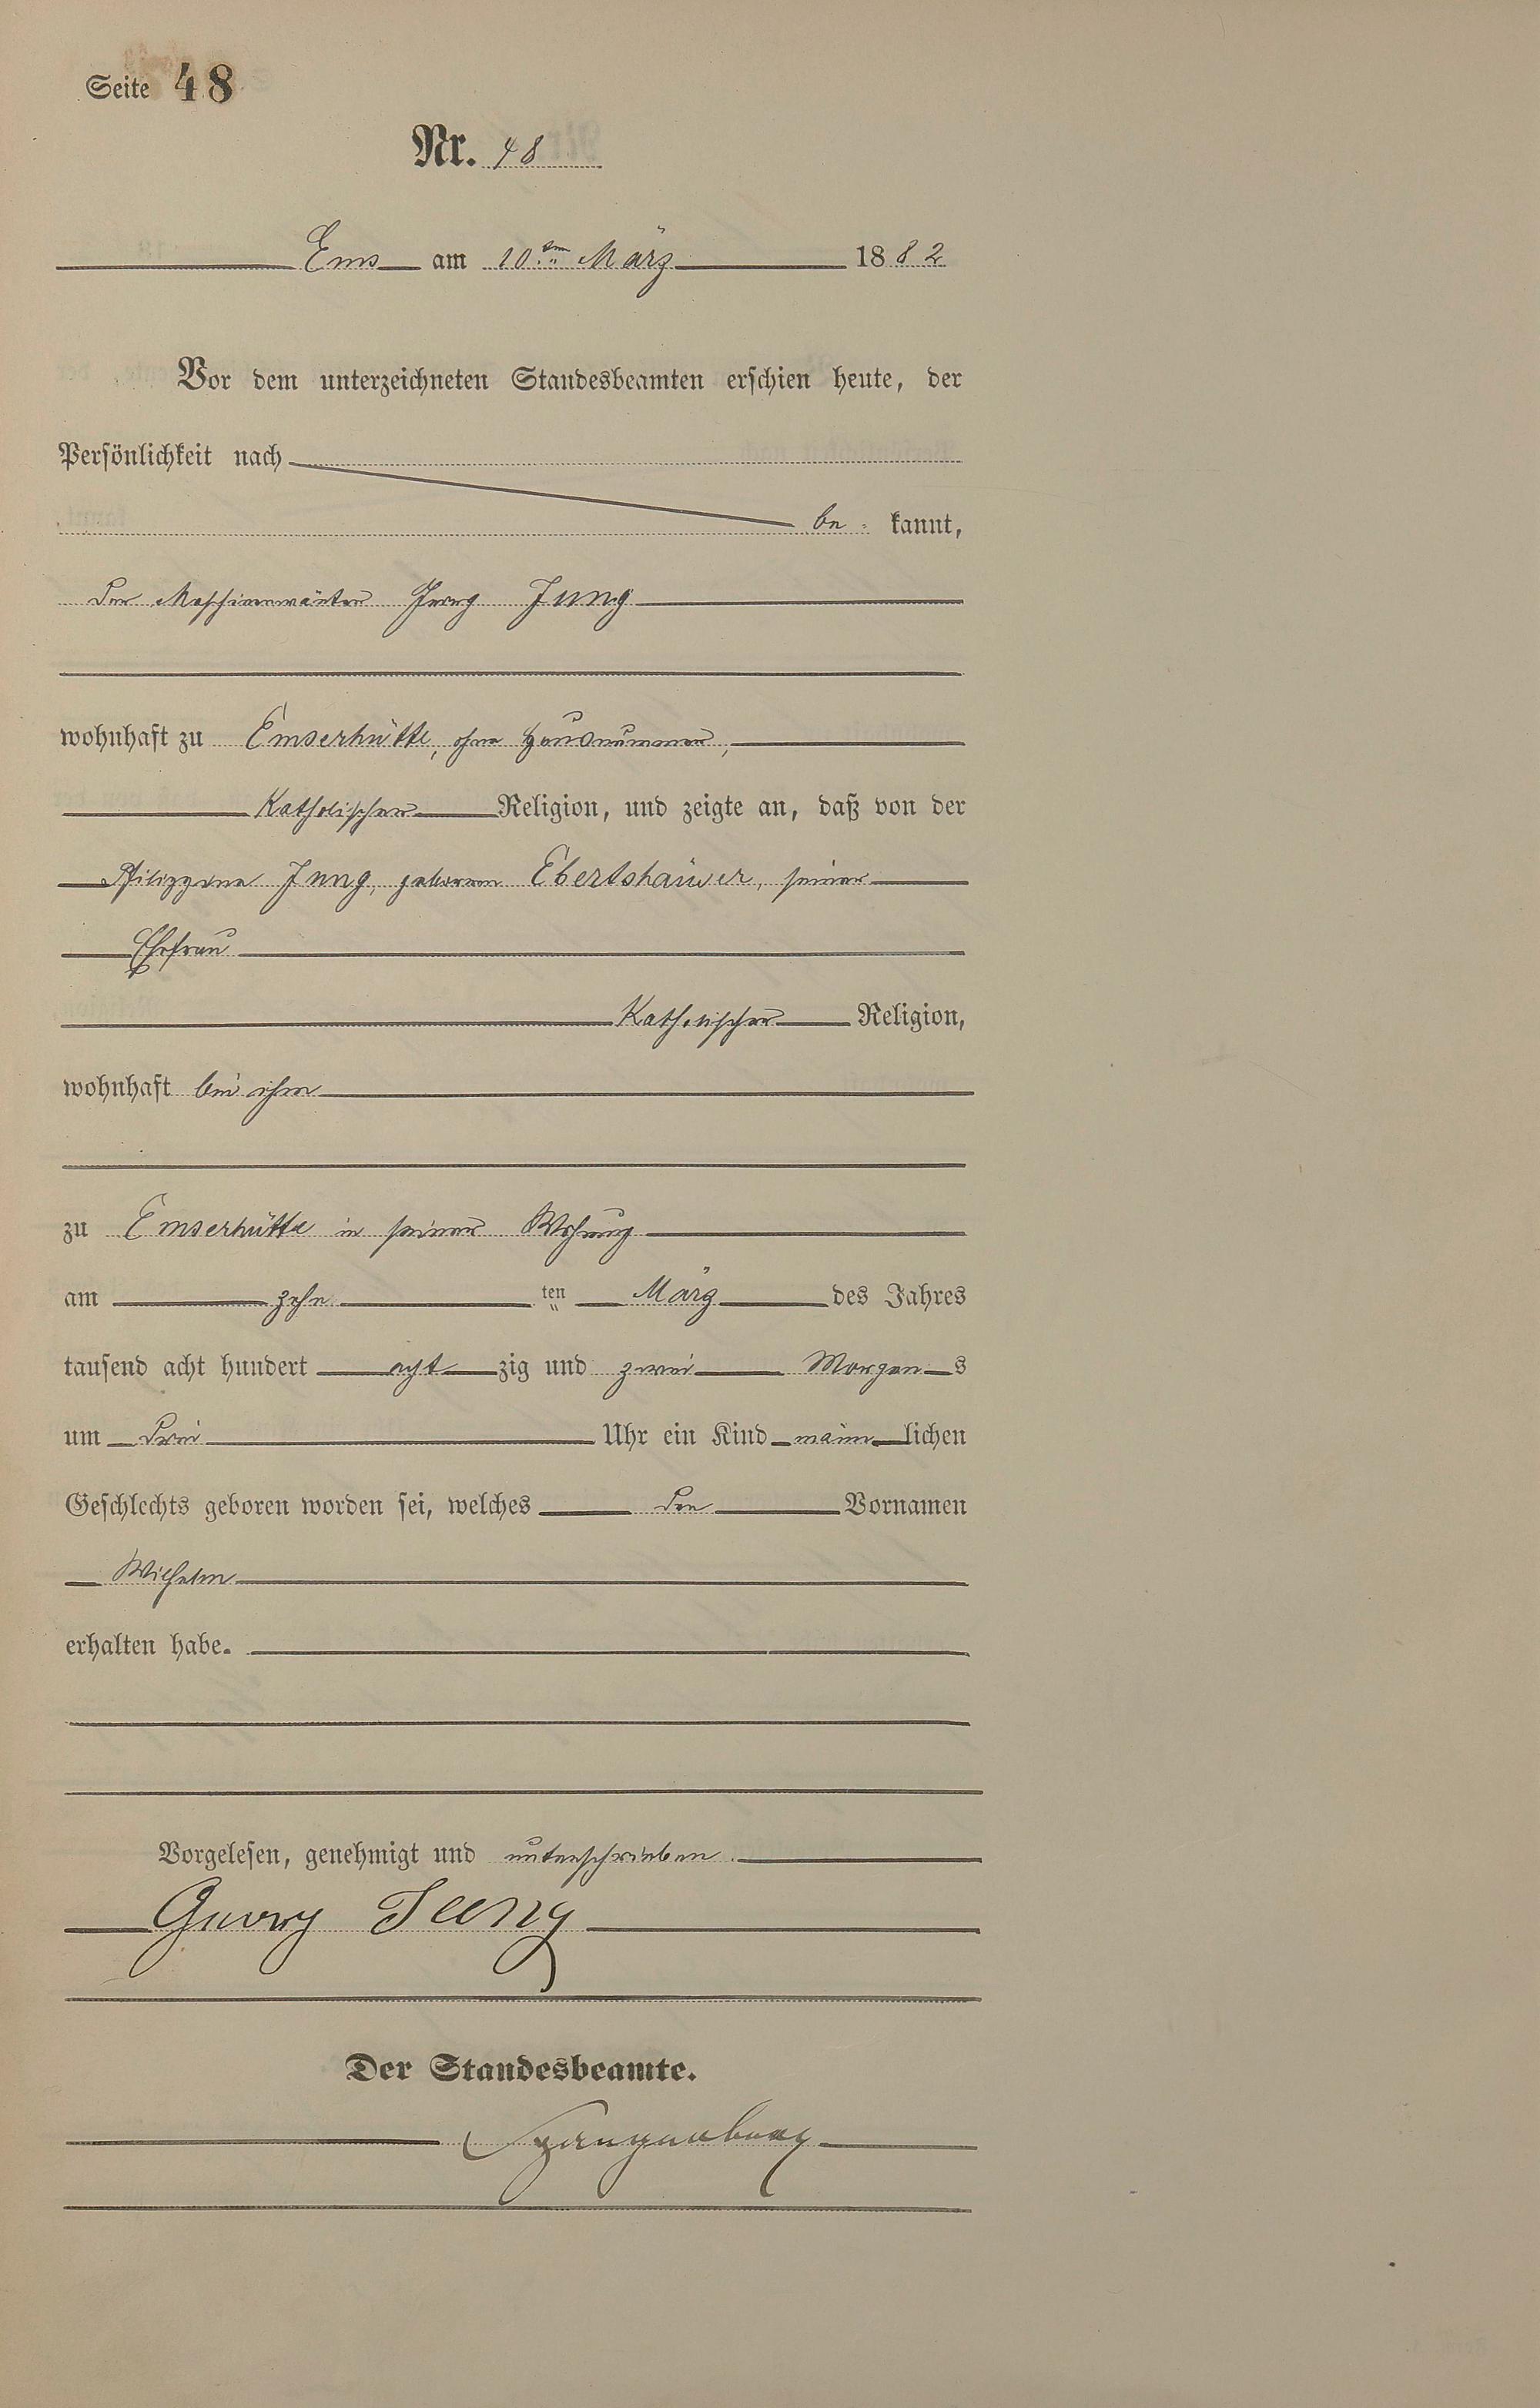 Seite 48
Nr. 48
Ems am 10ten März 1882
Vor dem unterzeichneten Standesbeamten erschien heute, der
Persönlichkeit nach
be kannt,
der Maschinenwärter Georg Jung
wohnhaft zu Emserhütte, ohne Hausnummer,
Katholischer Religion, und zeigte an, daß von der
Philippine Jung, geborenen Ebertshäuser, seiner
Ehefrau
Katholischer Religion,
wohnhaft bei ihm
zu Emserhütte in seiner Wohnung
am zehn ten März des Jahres
tausend acht hundert acht zig und zwei Morgen s
um drei Uhr ein Kind männ lichen
Geschlechts geboren worden sei, welches den Vornamen
Wilhelm
erhalten habe.
Vorgelesen, genehmigt und unterschrieben.
Georg Jung
Der Standesbeamte.
Spangenberg